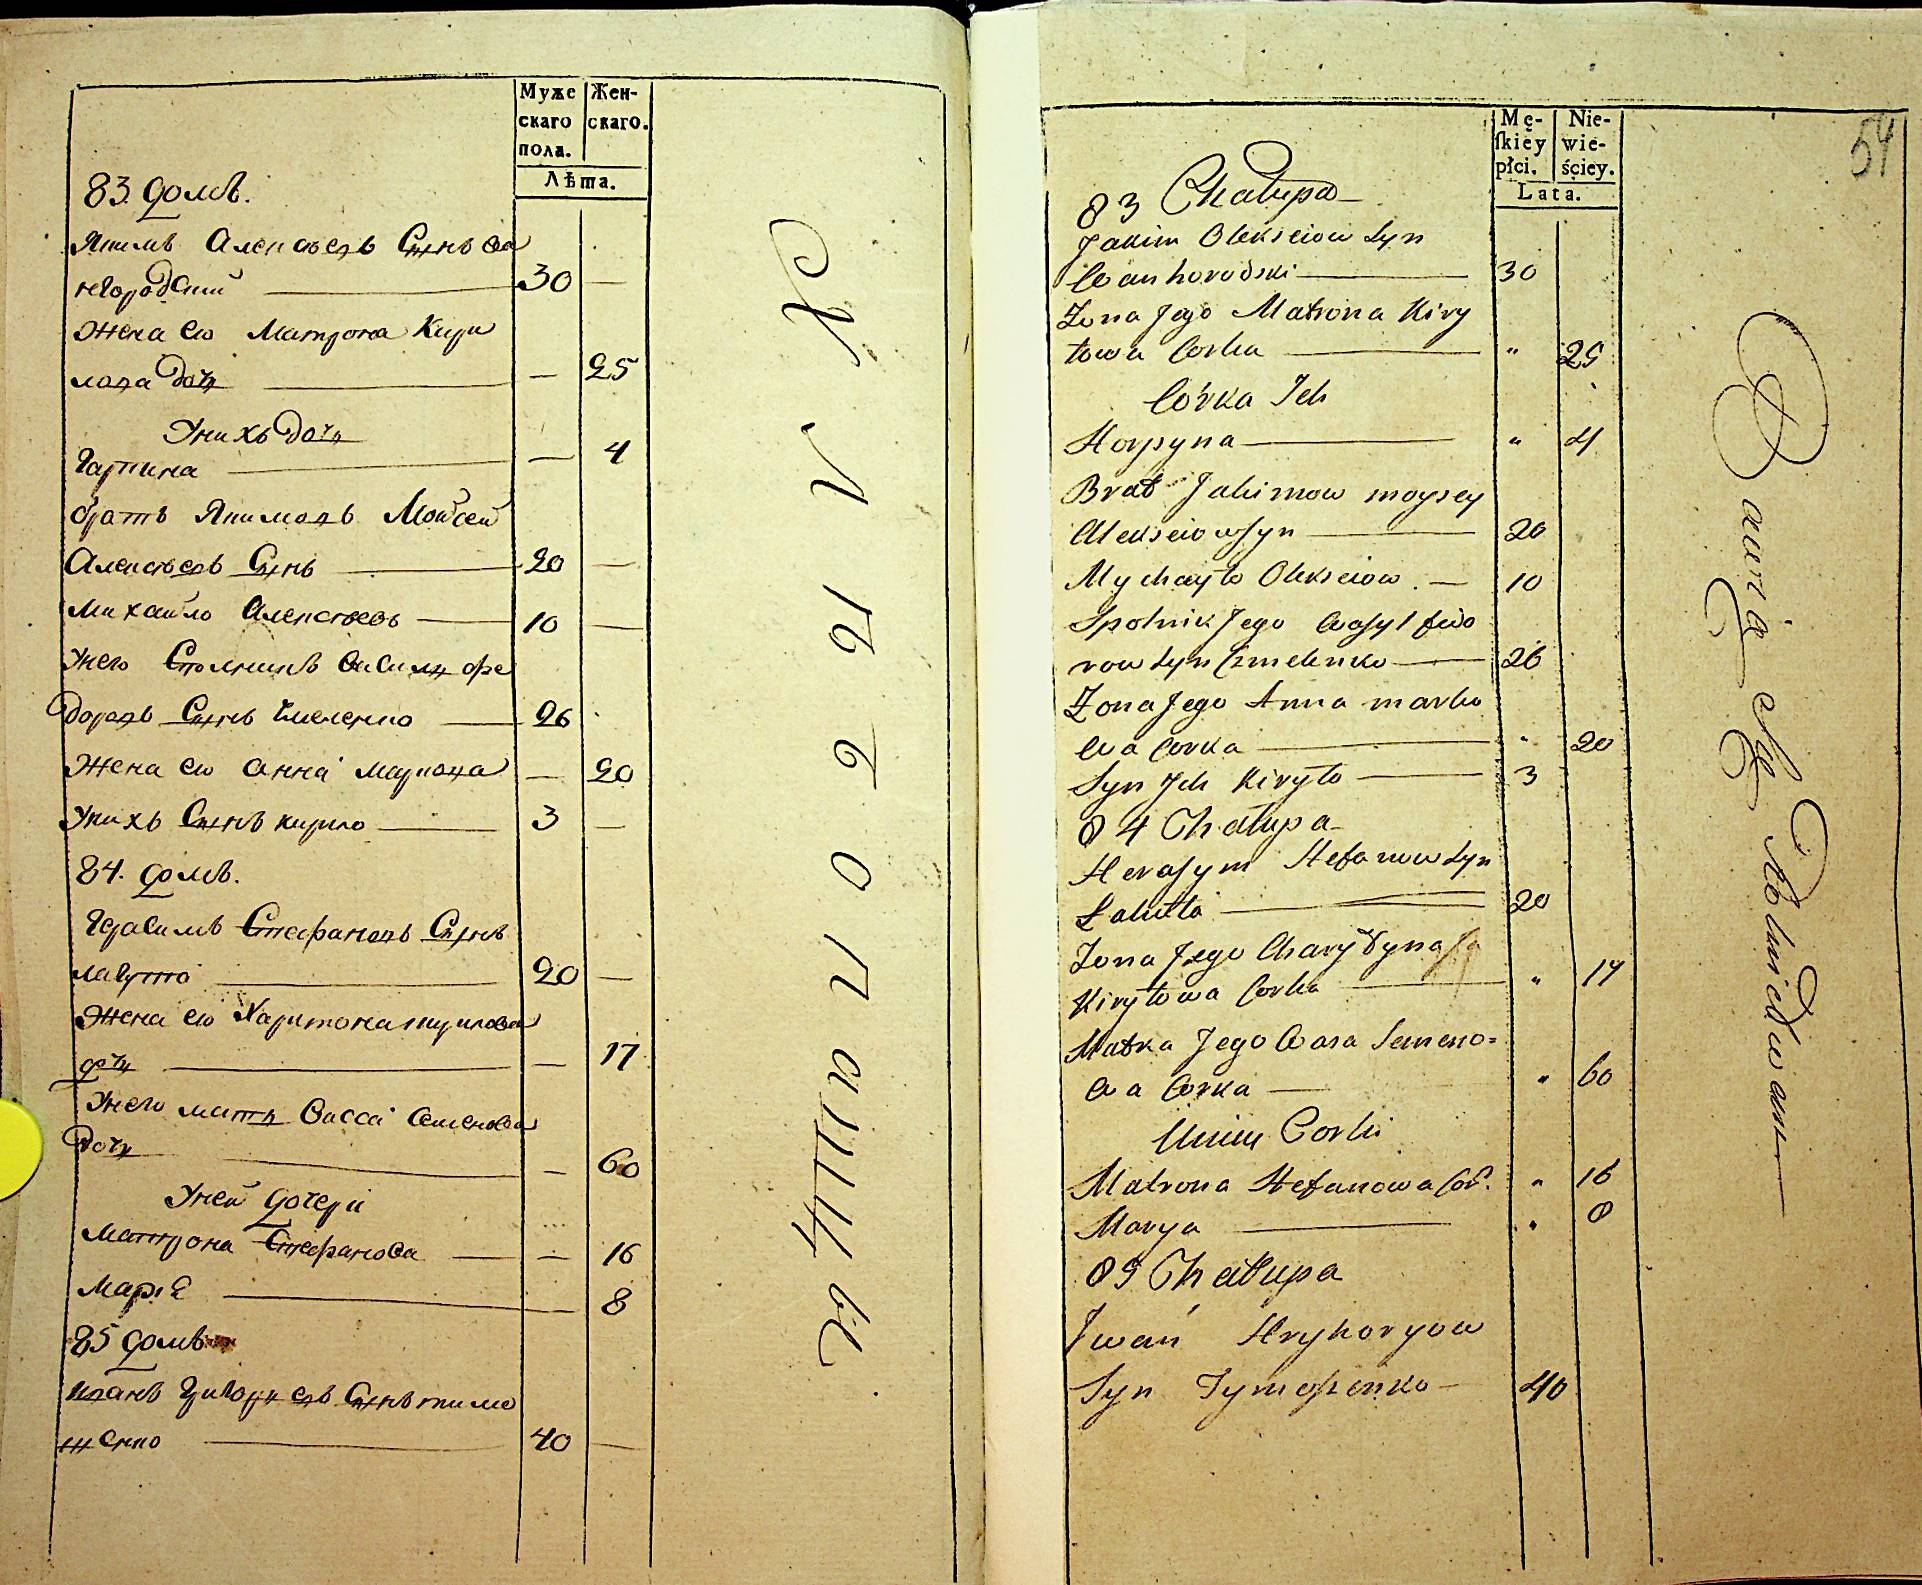 Муже
скаго
пола.
Жен-
скаго.
Лѣта.
83. домъ.
Якимъ Алексѣевъ Сынъ ива
негородский 30 —
Жена его Матрона Кири
лова дочь — 25
У нихъ дочь
Гарпина — 4
братъ Якимовъ Мойсей
Алексѣевъ Сынъ 20 —
Михайло Алексѣевъ 10 —
У него Столникъ василь фе
доровъ Сынъ Емеленко 26
Жена его анна маркова — 20
У нихъ Сынъ кирило 3 —
84. домъ.
Герасимъ Стефановъ Сынъ
лакутта 20 —
Жена его Харитона кирилова
дочь — 17
У него мать Васса Семенова
дочь — 60
У ней дочери
Матрона Стефанова — 16
Маріе 8
85 домъ
Иванъ Григориевъ Сынъ тимо
шенко 40 —
пописаны
54
Mę-
ſkiey
płci.
Nie-
wie-
ściey.
Lata.
83 Chałupa
Jakim Olexeiow Syn
Iwanhorodski 30
Żona Jego Matrona Kiry
łowa Corka " 25
Córka Ich
Horpyna " 4
Brat Jakimow moysey
Alexeiow Syn 20
Mychayło Olexeiow 10
Spolnik Jego Wasyl fedo
row Syn Emelenko 26
Żona Jego Anna marko
wa Corka " 20
Syn Ich Kiryło 3
84 Chałupa
Herasym Stefanow Syn
Łakutta 20
Żona Jego Charytyna
Kiryłowa Corka " 17
Matka Jego Wasa Semeno=
wa Corka " 60
U niey Corki
Matrona Stefanowa Cor. " 16
Marya " 8
85 Chałupa
Iwan Hryhoryow
Syn Tymoszenko 40